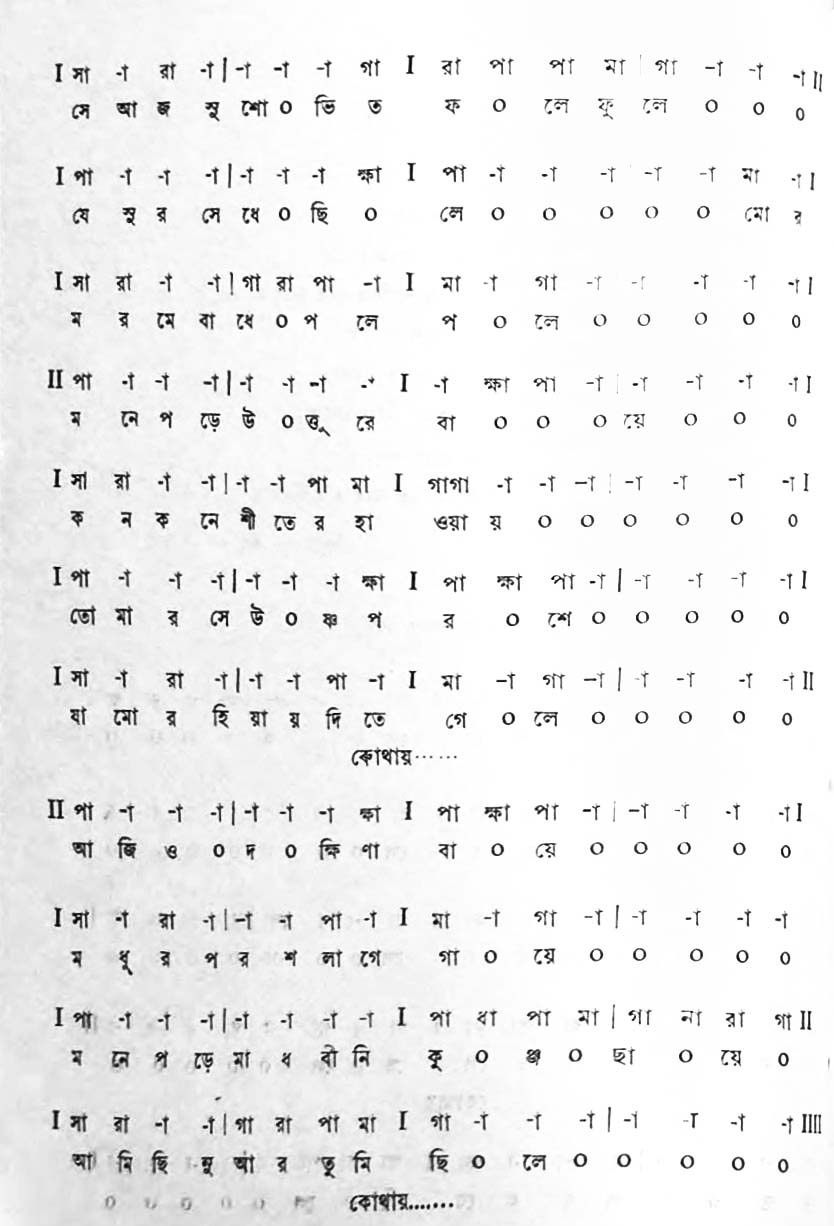 I সা -া রা -া | -া -া -া গা I রা পা পা মা | গা -া -া -া II
সে আ জ সু শো ০ ভি ত ফ ০ লে ফু লে ০ ০ ০
I পা -া -া -া | -া -া -া ক্ষা I পা -া -া -া | -া -া মা -া I
যে সু র সে ধে ০ ছি ০ লে ০ ০ ০ ০ ০ মো র
I সা রা -া -া | গা রা পা -া I মা -া গা -া -া -া -া -া I
ম র মে বা ধে ০ প লে প ০ লে ০ ০ ০ ০ ০
II পা -া -া -া | -া -া -া I -া ক্ষা পা -া | -া -া -া -া I
ম নে প ড়ে উ ০ ত্তু রে বা ০ ০ ০ য়ে ০ ০ ০
I সা রা -া -া | -া -া পা মা I গাগা -া -া -া | -া -া -া -া I
ক ন ক নে শী তে র হা ওয়া য় ০ ০ ০ ০ ০ ০
I পা -া -া -া | -া -া -া ক্ষা I পা ক্ষা পা -া | -া -া -া -া I
তো মা র সে উ ০ ষ্ণ প র ০ শে ০ ০ ০ ০ ০
I সা -া রা -া | -া -া পা -া I মা -া গা -া | -া -া -া -া II
যা মো র হি য়া য় দি তে গে ০ লে ০ ০ ০ ০ ০
কোথায়······
II পা -া -া -া | -া -া -া ক্ষা I পা ক্ষা পা -া | -া -া -া -া I
আ জি ও ০ দ ০ ক্ষি ণা বা ০ য়ে ০ ০ ০ ০ ০
I সা -া রা -া | -া -া পা -া I মা -া গা -া | -া -া -া -া
ম ধু র প র শ লা গে গা ০ য়ে ০ ০ ০ ০ ০
I পা -া -া -া | -া -া -া -া I পা ধা পা মা | গা না রা গা II
ম নে প ড়ে মা ধ বী নি কু ০ ঞ্জ ০ ছা ০ য়ে ০
I সা রা -া -া | গা রা পা মা I গা -া -া -া | -া -া -া -া IIII
আ মি ছি নু আ র তু মি ছি ০ লে ০ ০ ০ ০ ০
কোথায়.......